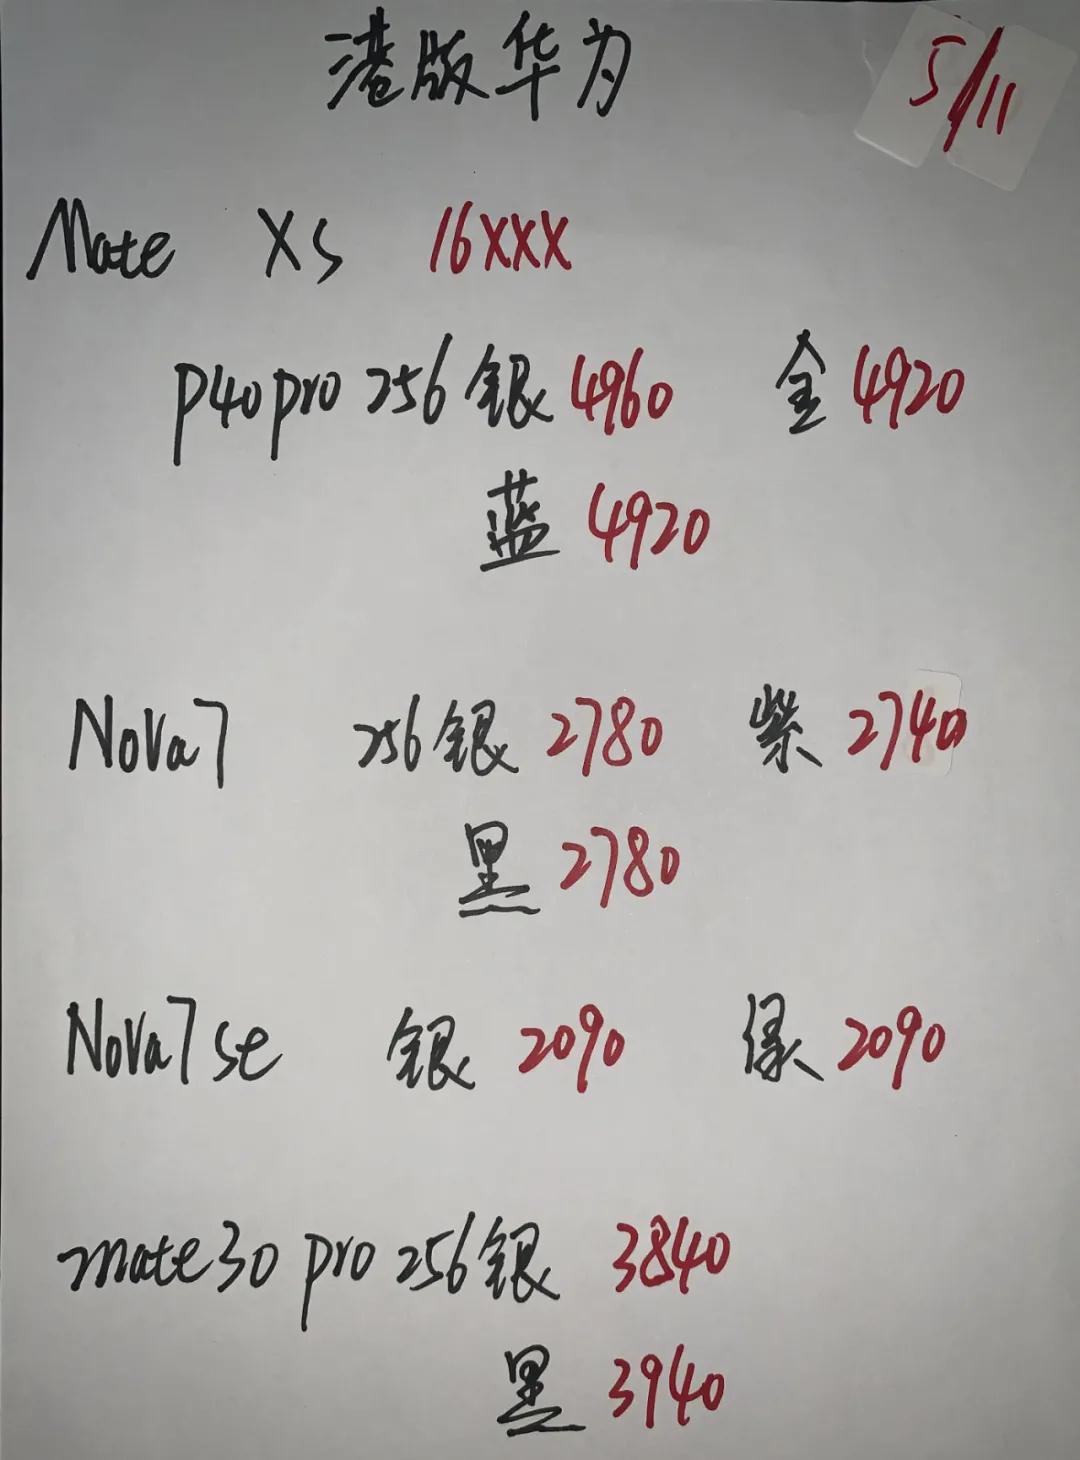 港版华为 5/11
Mate XS 16XXX
P40pro 256 银 4960 金 4920
蓝 4920
Nova7 256 银 2780 紫 2740
黑 2780
Nova7se 银 2090 绿 2090
mate30 pro 256 银 3840
黑 3940